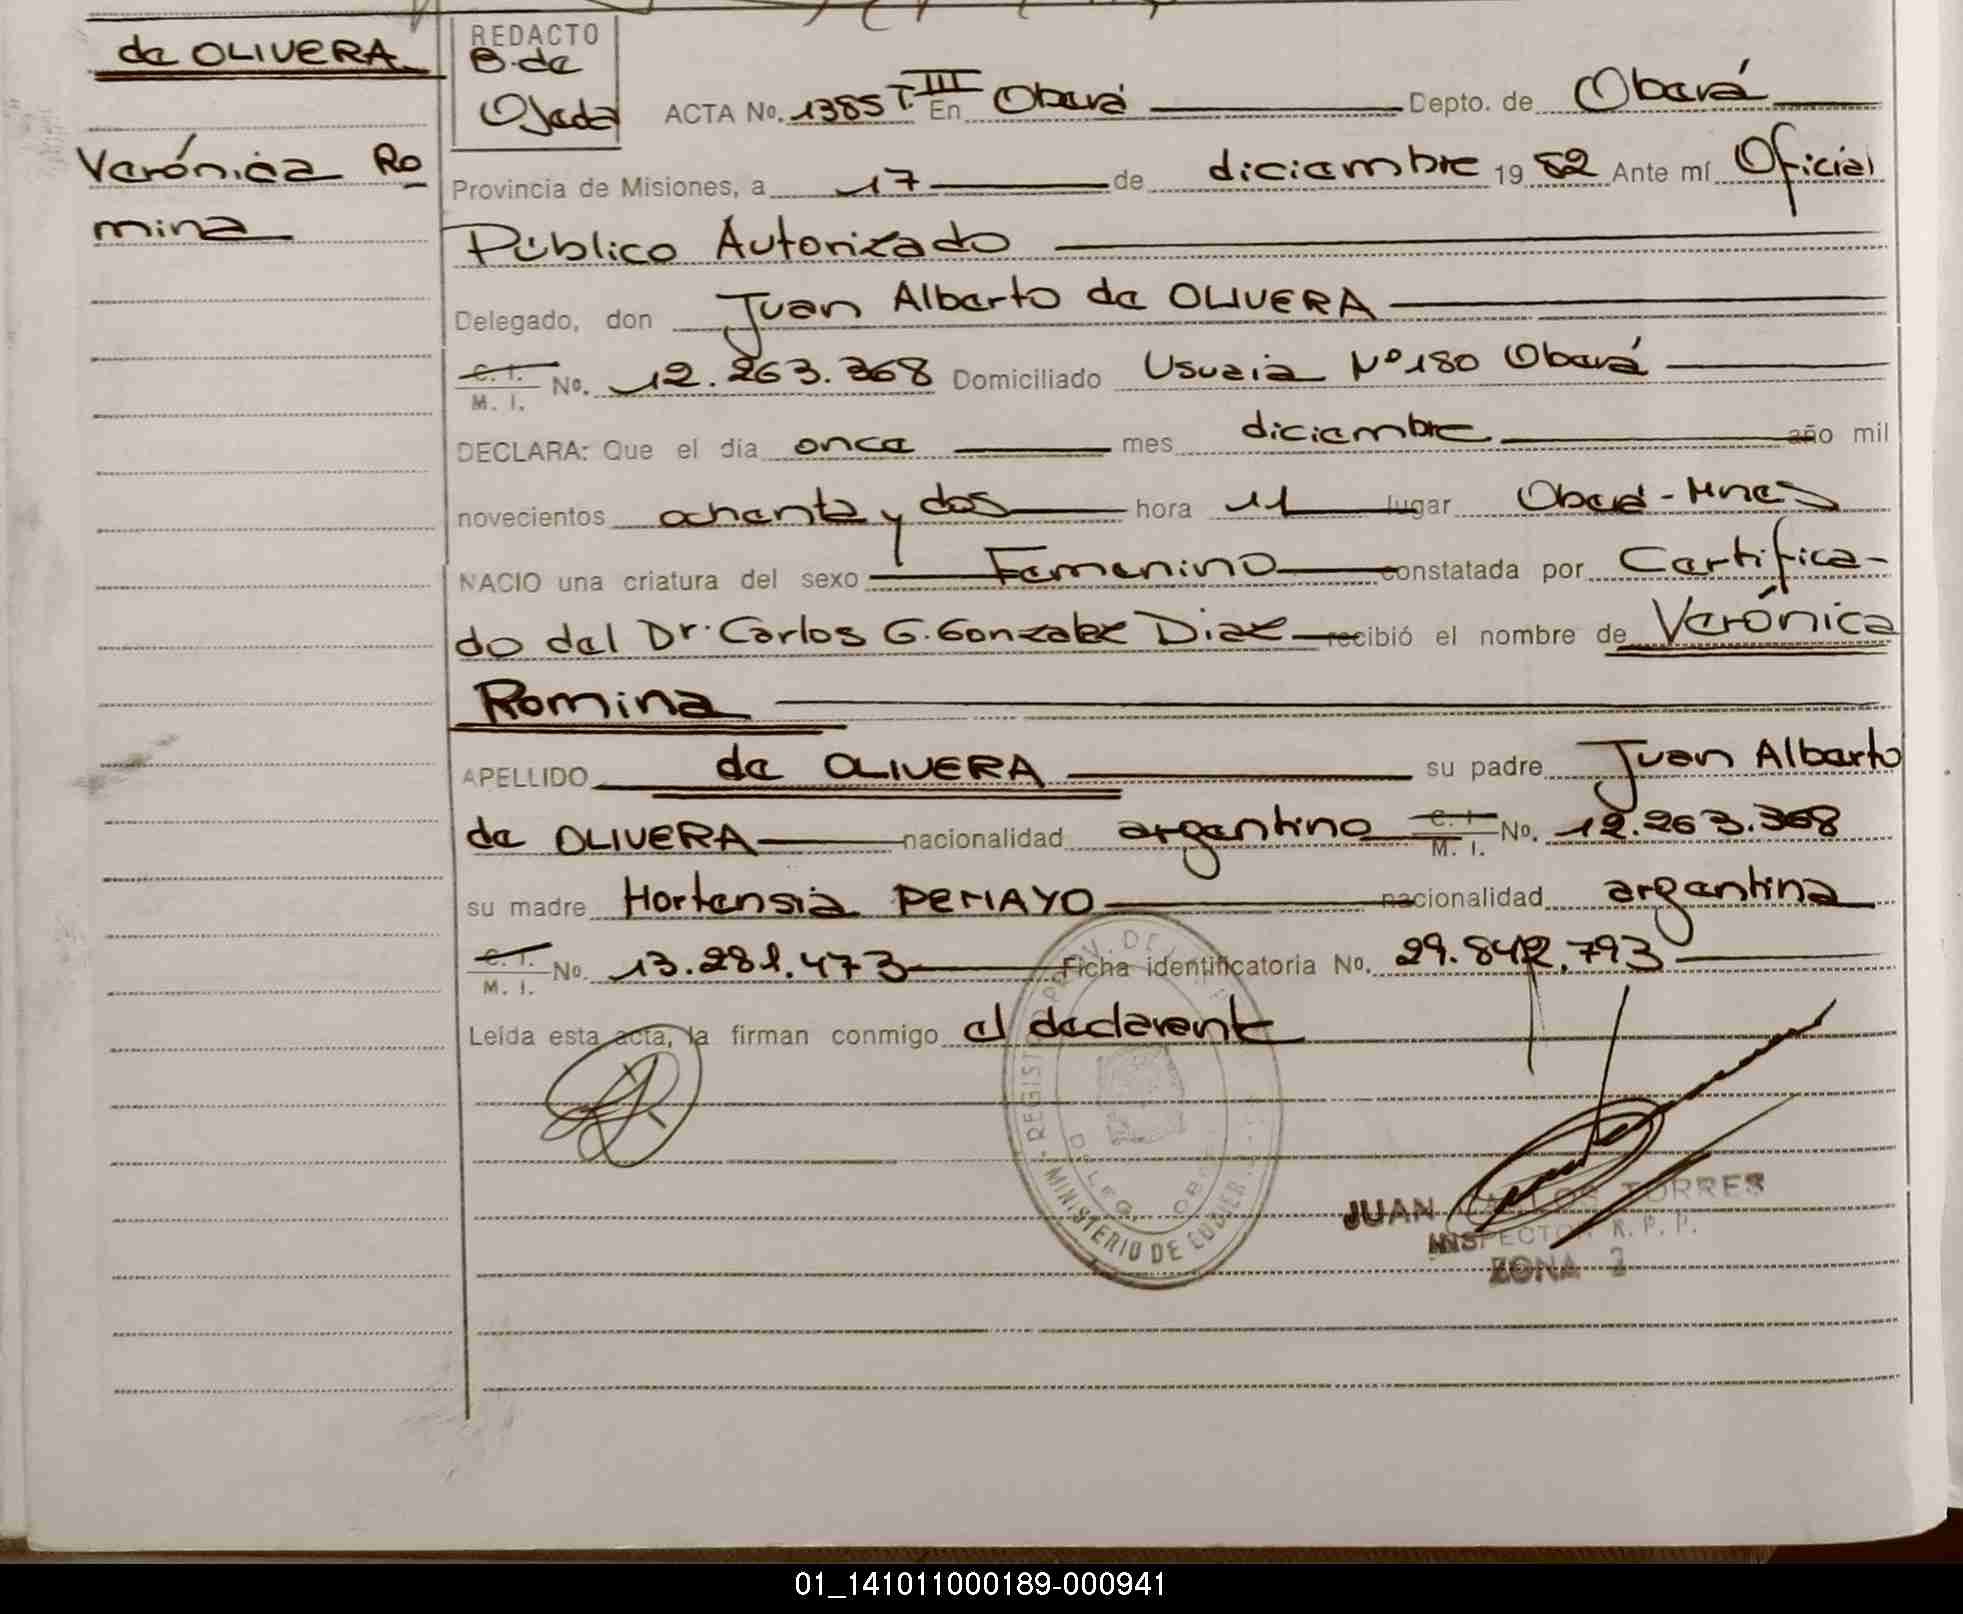 de OLIVERA
Verónica Ro
mina
REDACTO
B. de
Ojeda
ACTA No. 1385 T. III En Oberá Depto. de Oberá
Provincia de Misiones, a 17 de diciembre 19 82 Ante mí Oficial
Público Autorizado
Delegado, don Juan Alberto de OLIVERA
C. I. M. I. No. 12.263.368 Domiciliado Usuaia Nº 180 Oberá
DECLARA: Que el día once mes diciembre año mil
novecientos ochenta y dos hora 11 lugar Oberá - Mnes
NACIO una criatura del sexo Femenino constatada por Certifica-
do del Dr. Carlos G. Gonzalez Diaz recibió el nombre de Verónica
Romina
APELLIDO de OLIVERA su padre Juan Alberto
de OLIVERA nacionalidad argentino C. I. M. I. No. 12.263.368
su madre Hortensia PEMAYO nacionalidad argentina
C. I. M. I. No. 13.281.473 Ficha identificatoria No. 29.842.793
Leída esta acta, la firman conmigo el declarante
MINISTERIO DE
JUAN CARLOS TORRES
INSPECTOR R. P. P.
ZONA 2
01_141011000189-000941